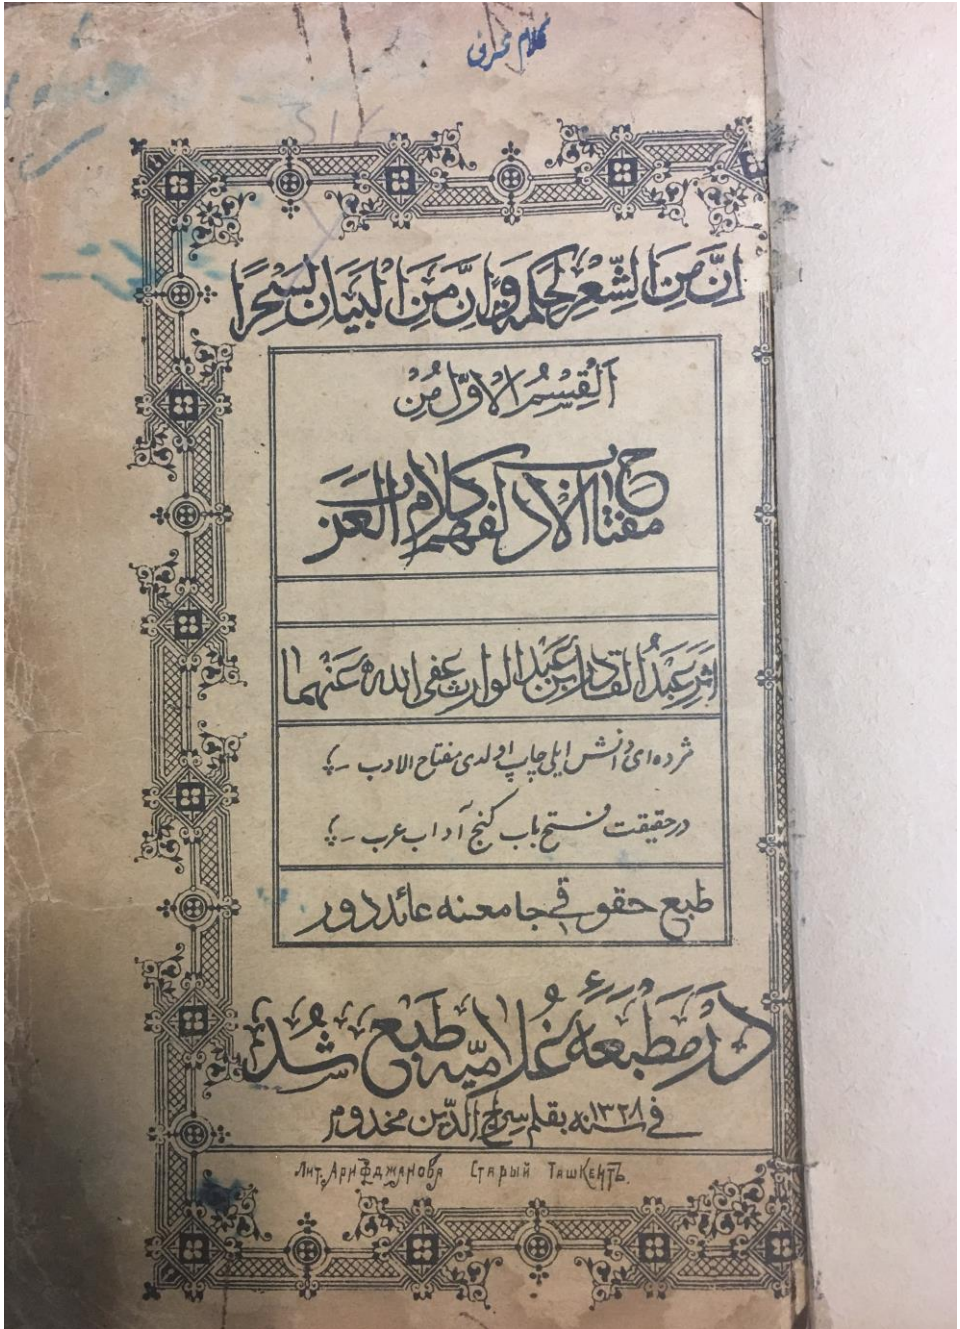 کلام
إنَّ مِنَ الشِّعْرِ لَحِكْمَةً وَإِنَّ مِنَ الْبَيَانِ لَسِحْرًا
اَلْقِسْمُ الْاَوَّلُ مِنْ
مفتاح الادب لفهم كلام العرب
اثر عَبْدُ القادر ابن عَبْد الوارث عفى الله عَنْهما
مژده ای دانش ایلی چاپ اولدی مفتاح الادب
در حقیقت فتح باب گنج آداب عرب
طبع حقوقی جامعنه عائددور
دَرْ مَطْبَعَهٔ غُلامیّه طَبع شُد
فی سنه ۱۳۲۸ بقلم سراج الدّین مخدوم
Лит. Арифджанова Старый Ташкентъ.